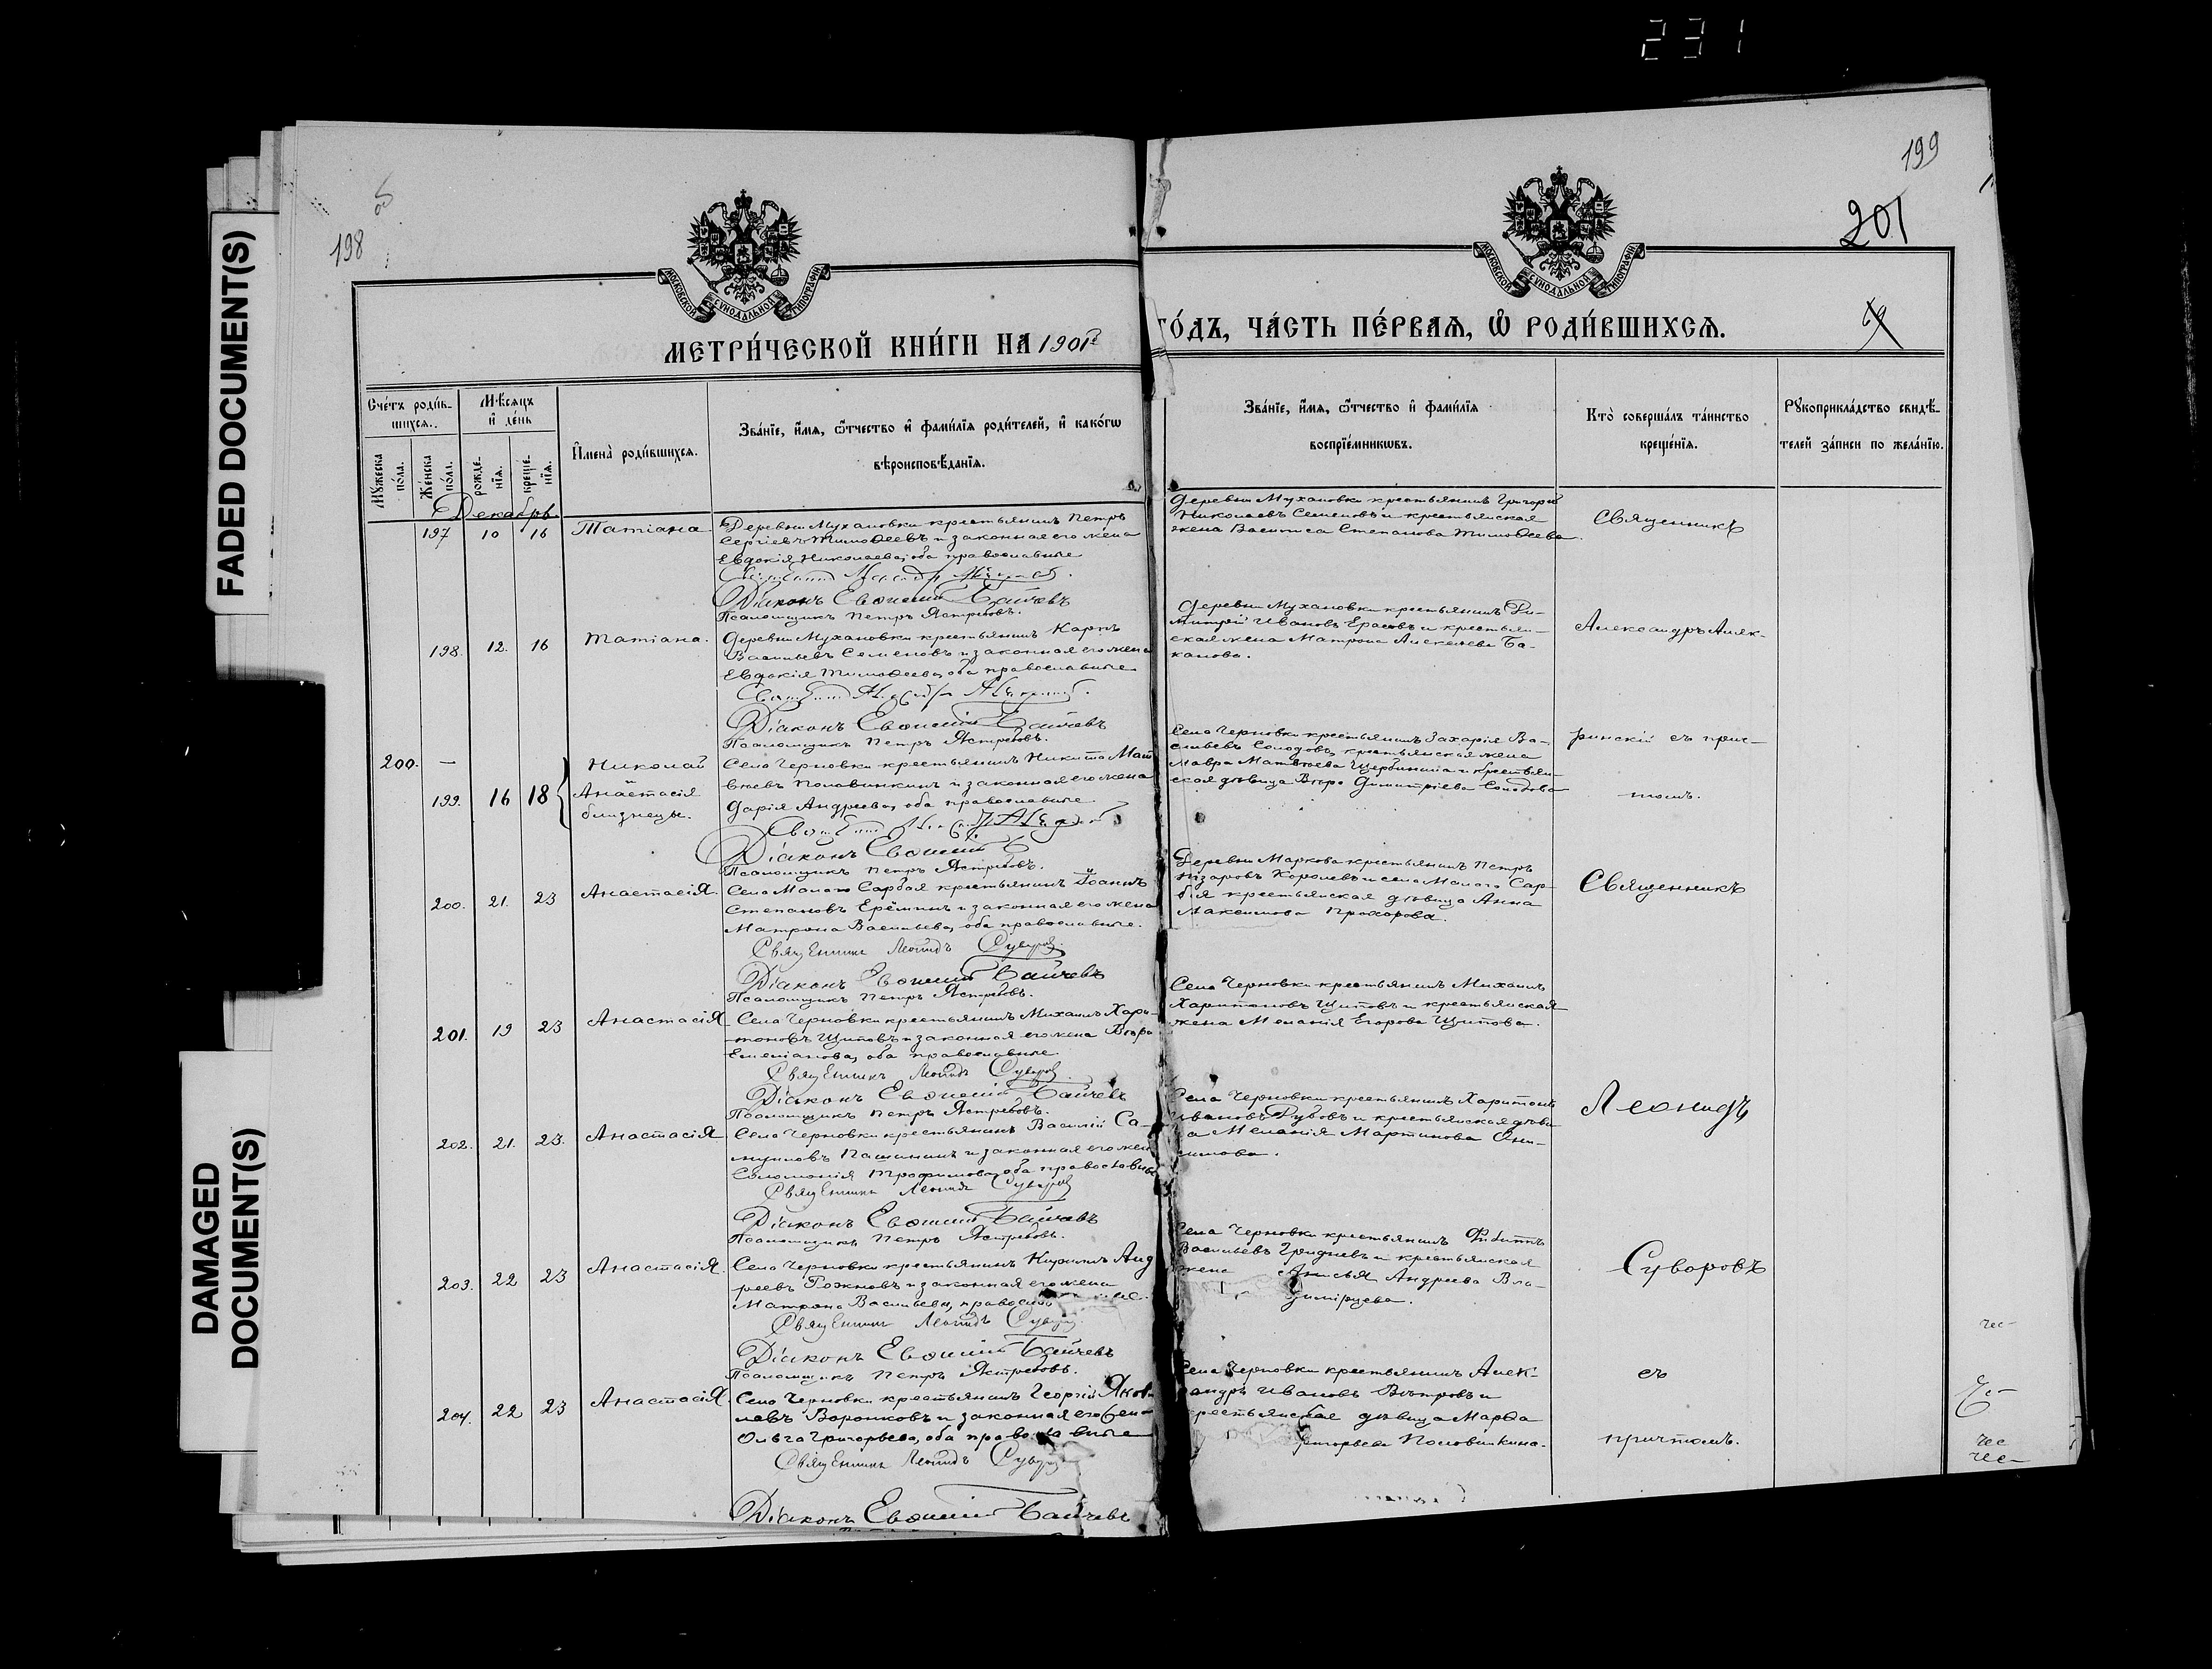 231
FADED DOCUMENT(S)
DAMAGED
DOCUMENT(S)
198
об
199
201
МОСКОВСКОЙ СѴНОДАЛЬНОЙ ТИПОГРАФІИ
МОСКОВСКОЙ СѴНОДАЛЬНОЙ ТИПОГРАФІИ
МЕТРИ́ЧЕСКОЙ КНИ́ГИ НА 1901
ГО́ДЪ, ЧА́СТЬ ПЕ́РВАѦ, Ѡ РОДИ́ВШИХСѦ.
Сче́тъ роди́в-
шихсѧ.
Мꙋ́жеска по́ла.
Же́нска по́ла.
Мѣ́сѧцъ
и де́нь
рожде́-
нїѧ.
креще́-
нїѧ.
Имена̀ роди́вшихсѧ.
Зва́нїе, и́мѧ, ѻ҆́тчество и фами́лїѧ роди́телей, и како́гѡ
вѣроисповѣ́данїѧ.
Зва́нїе, и́мѧ, ѻ҆́тчество и фами́лїѧ
воспрїе́мникѡвъ.
Кто̀ соверша́лъ та́инство
креще́нїѧ.
Рꙋкоприкла́дство свидѣ́-
телей за́писи по жела́нїю.
Декабрь
197 10 16 Татіана
Деревни Мухановки крестьянинъ Петръ
Сергіевъ Тимоѳеевъ и законная его жена
Евдокія Николаева, оба православные
Діаконъ Евѳимій Байчевъ
Псаломщикъ Петръ Ястребовъ.
Деревни Мухановки крестьянинъ Григорій
Николаевъ Семеновъ и крестьянская
жена Васил иса Степанова Тимоѳеева.
Священникъ
198. 12. 16 Татіана.
Деревни Мухановки крестьянинъ Карпъ
Васильевъ Семеновъ и законная его жена
Евдокія Тимоѳеева, оба православные
Діаконъ Евѳимій Байчевъ
Псаломщикъ Петръ Ястребовъ.
Деревни Мухановки крестьянинъ Ди-
митрій Ивановъ Ерасовъ и крестьян-
ская жена Матрона Алексѣева Ба-
канова.
Александръ Алек-
200. —
199. 16 18
Николай
и
Анастасія
близнецы.
Села Черновки крестьянинъ Никита Мат
вѣевъ Половинкинъ и законная его жена
Дарія Андреева, оба православные
Діаконъ Евѳимій
Псаломщикъ Петръ Ястребовъ.
Села Черновки крестьянинъ Захарія Ва-
сильевъ Солодовъ, крестьянская жена
Мавра Матвѣева Щербинина и крестьян-
ская дѣвица Вѣра Димитріева Солодова
ринскій съ прич-
томъ.
200. 21. 23 Анастасія
Села Малаго Сарбая крестьянинъ Іоаннъ
Степановъ Ерёминъ и законная его жена
Матрона Васильева, оба православные.
Священникъ Леонидъ Суворов
Діаконъ Евѳимій Байчевъ
Псаломщикъ Петръ Ястребовъ.
Деревни Маркова крестьянинъ Петръ
Назаровъ Королевъ и села Малаго Сар-
бая крестьянская дѣвица Анна
Максимова Прохорова.
Священникъ
201. 19 23 Анастасія
Села Черновки крестьянинъ Михаилъ Хари-
тоновъ Щиповъ и законная его жена Вѣра
Емеліанова, оба православные.
Священникъ Леонидъ Суворов
Діаконъ Евѳимій Байчевъ
Псаломщикъ Петръ Ястребовъ.
Села Черновки крестьянинъ Михаилъ
Харитоновъ Щиповъ и крестьянская
жена Меланія Егорова Щипова.
Леонидъ
202. 21. 23. Анастасія
Села Черновки крестьянинъ Василій Са-
муиловъ Пашининъ и законная его жена
Соломонія Трофимова, оба православные
Священникъ Леонидъ Суворов
Діаконъ Евѳимій Байчевъ
Псаломщикъ Петръ Ястребовъ.
Села Черновки крестьянинъ Харитонъ
Ивановъ Дубовъ и крестьянская дѣви
ца Меланія Мартинова Они-
симова.
203. 22 23 Анастасія.
Села Черновки крестьянинъ Кириллъ Анд
реевъ Рожновъ и законная его жена
Матрона Васильева,
Священникъ Леонидъ Суворов
Діаконъ Евѳимій Байчевъ
Псаломщикъ Петръ Ястребовъ.
Села Черновки крестьянинъ
Васильевъ Гридневъ и крестьянская
жена Анисья Андреева Вла-
димірцева.
Суворовъ
204. 22 23 Анастасія.
Села Черновки крестьянинъ Георгій Яков
левъ Воронковъ и законная его жена
Ольга Григорьева, оба православные
Священникъ Леонидъ Суворов
Діаконъ Евѳимій Байчевъ
Села Черновки крестьянинъ Алек-
сандръ Ивановъ Вѣтровъ и
крестьянская дѣвица Марѳа
Григорьева Половинкина.
съ
причтомъ.
чес-
чес
чес-